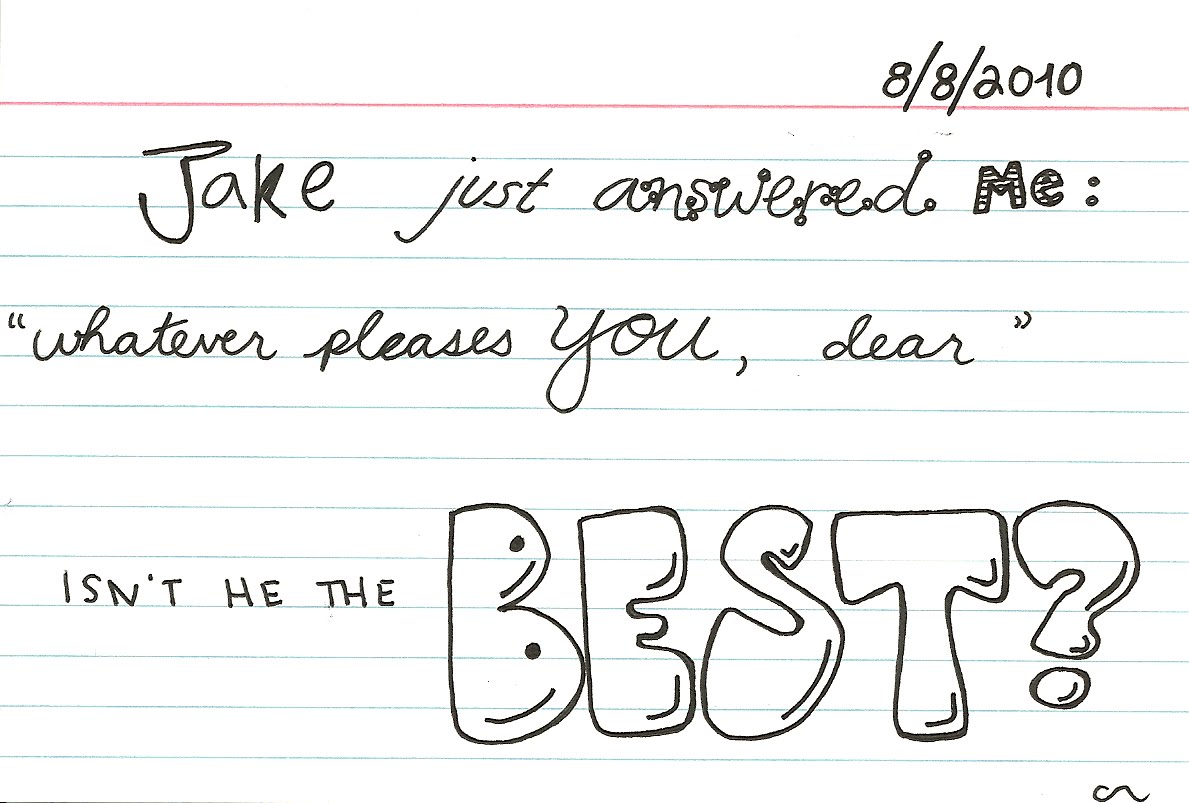 8/8/2010
Jake just answered Me:
"whatever pleases YOU, dear"
ISN'T HE THE BEST?